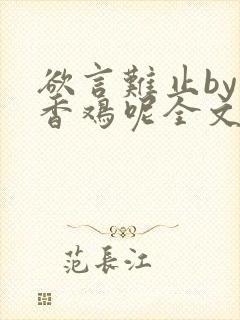 欲言難止by
香鸡呢全文
范長江